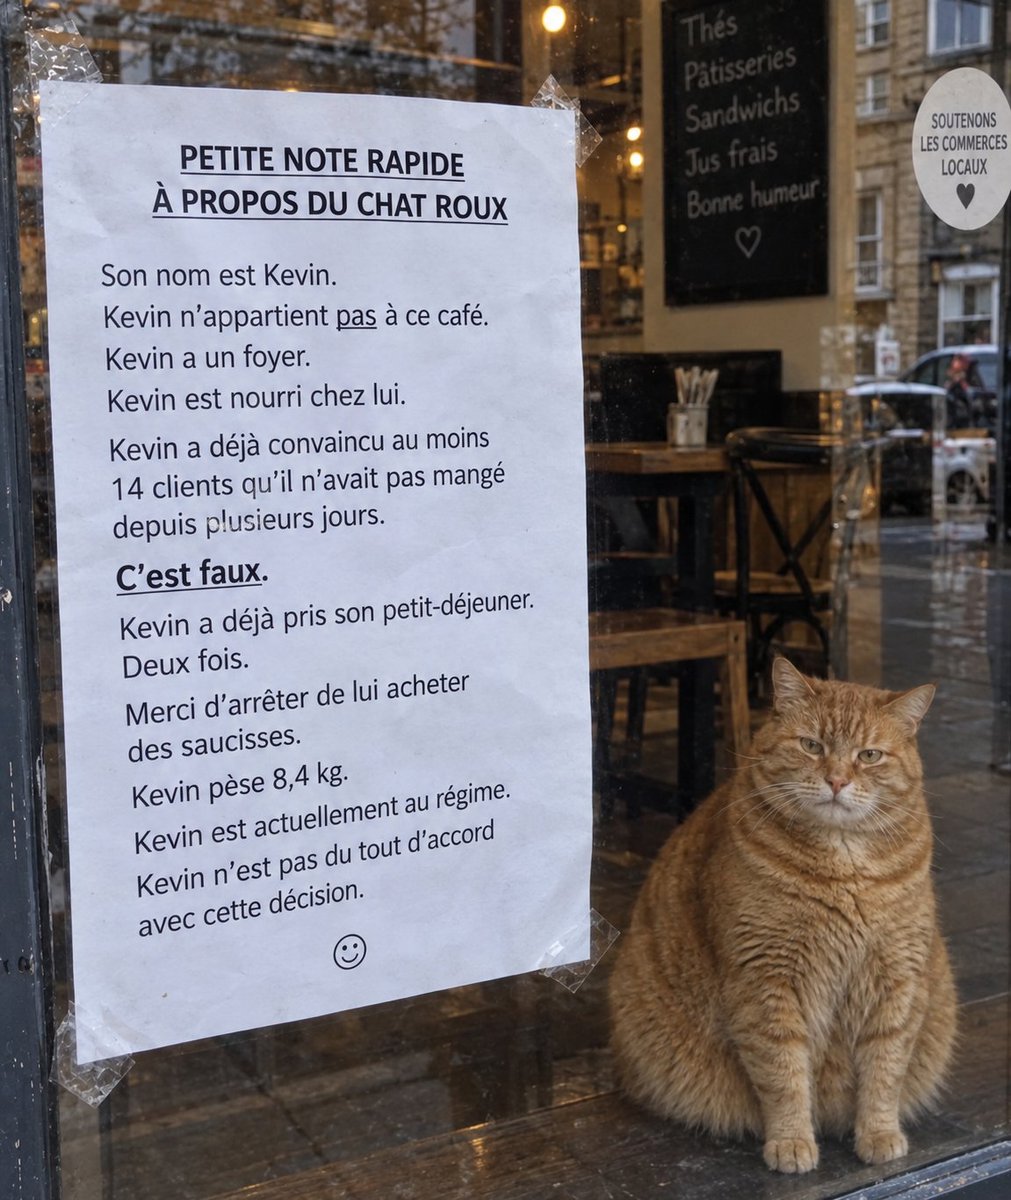 PETITE NOTE RAPIDE
À PROPOS DU CHAT ROUX
Son nom est Kevin.
Kevin n’appartient pas à ce café.
Kevin a un foyer.
Kevin est nourri chez lui.
Kevin a déjà convaincu au moins
14 clients qu’il n’avait pas mangé
depuis plusieurs jours.
C’est faux.
Kevin a déjà pris son petit-déjeuner.
Deux fois.
Merci d’arrêter de lui acheter
des saucisses.
Kevin pèse 8,4 kg.
Kevin est actuellement au régime.
Kevin n’est pas du tout d’accord
avec cette décision.
Thés
Pâtisseries
Sandwichs
Jus frais
Bonne humeur
SOUTENONS
LES COMMERCES
LOCAUX